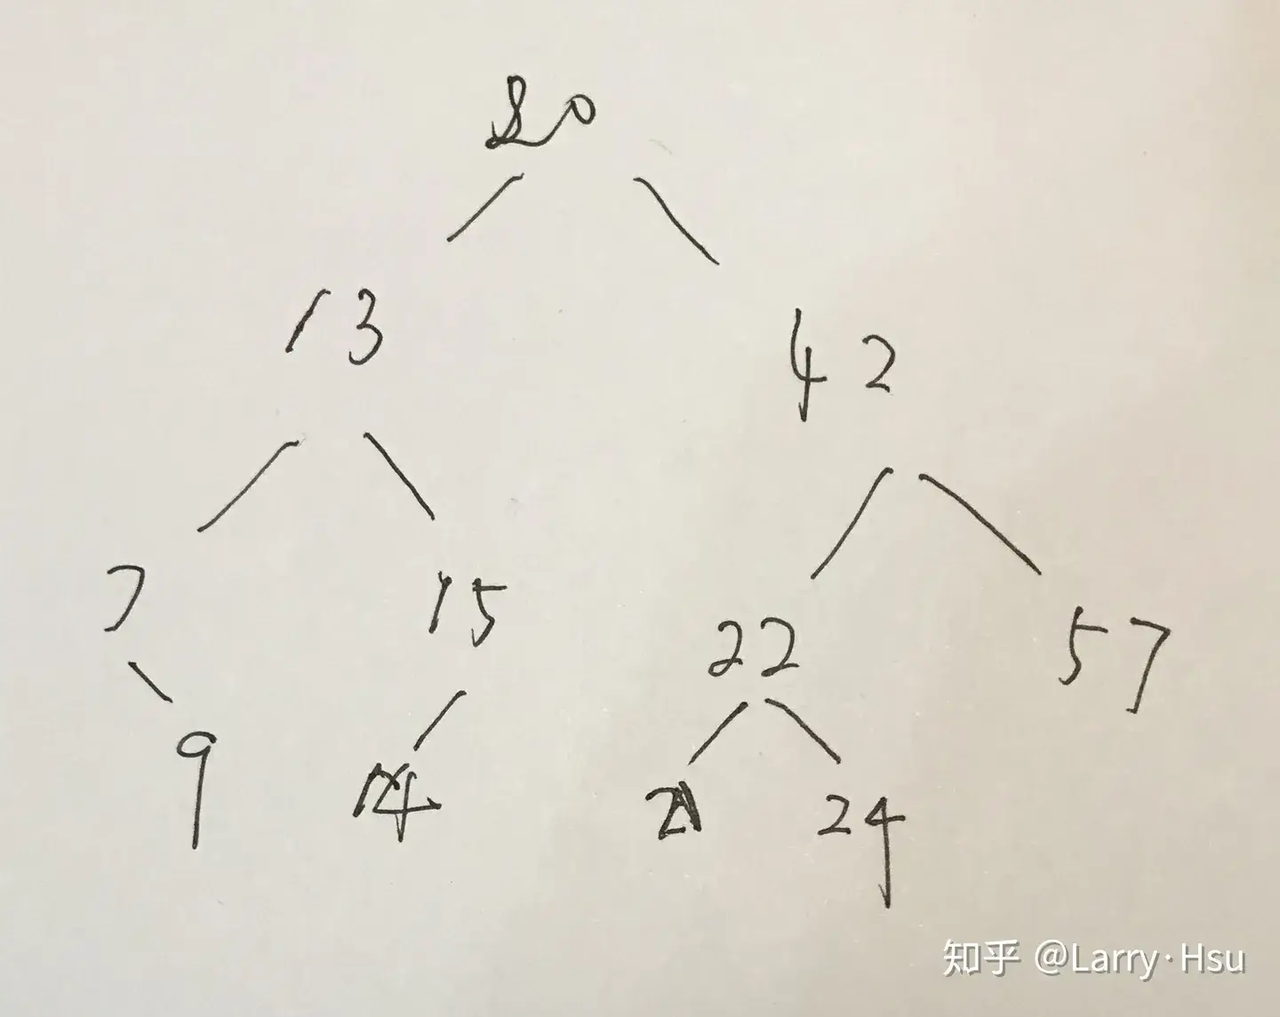 20
13
42
7
15
22
57
9
14
21
24
知乎 @Larry·Hsu